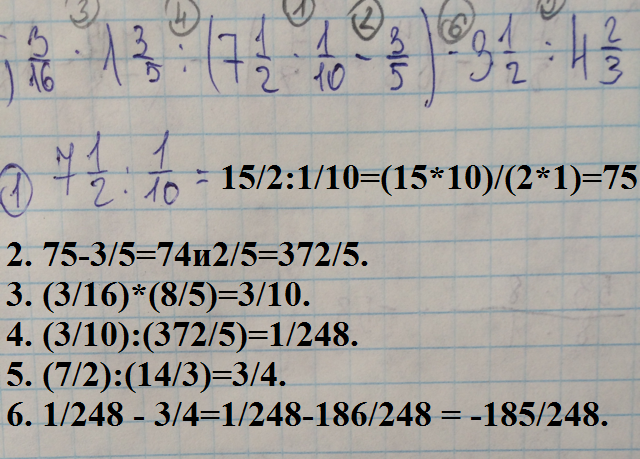 3 4 1 2 6
) 3/16 · 1 3/5 : (7 1/2 : 1/10 - 3/5) - 3 1/2 : 4 2/3
1 7 1/2 : 1/10 = 15/2:1/10=(15*10)/(2*1)=75
2. 75-3/5=74и2/5=372/5.
3. (3/16)*(8/5)=3/10.
4. (3/10):(372/5)=1/248.
5. (7/2):(14/3)=3/4.
6. 1/248 - 3/4=1/248-186/248 = -185/248.